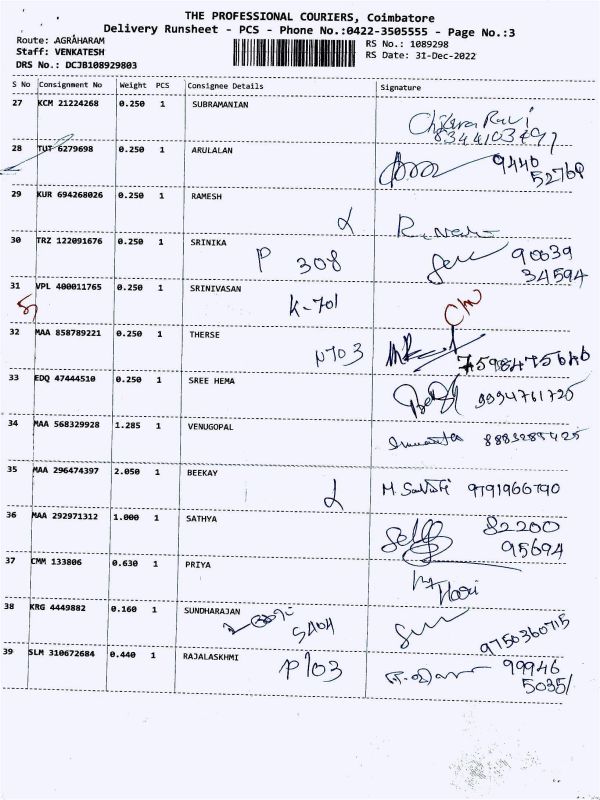 THE PROFESSIONAL COURIERS, Coimbatore
Delivery Runsheet - PCS - Phone No.:0422-3505555 - Page No.:3
Route: AGRAHARAM
RS No.: 1089298
Staff: VENKATESH
RS Date: 31-Dec-2022
DRS No.: DCJB108929803
S No Consignment No Weight PCS Consignee Details Signature
27 KCM 21224268 0.250 1 SUBRAMANIAN
8344103497
28 TUT 6279698 0.250 1 ARULALAN
9440
52768
29 KUR 694268026 0.250 1 RAMESH
30 TRZ 122091676 0.250 1 SRINIKA
P 308
90039
34594
31 VPL 400011765 0.250 1 SRINIVASAN
K-701
32 MAA 858789221 0.250 1 THERSE
N703
7598475646
33 EDQ 47444510 0.250 1 SREE HEMA
9994761725
34 MAA 568329928 1.285 1 VENUGOPAL
8883285425
35 MAA 296474397 2.050 1 BEEKAY
9791966790
36 MAA 292971312 1.000 1 SATHYA
Self
82200
95694
37 CMM 133806 0.630 1 PRIYA
38 KRG 4449882 0.160 1 SUNDHARAJAN
S404
9750360715
39 SLM 310672684 0.440 1 RAJALASKHMI
P103
99946
50351